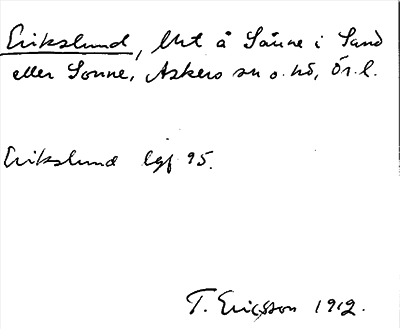 Erikslund, lht å Sånne i Sand
eller Sonne, Askers sn o. hd, Ör. l.
Erikslund lgf 95.
T. Ericsson 1912.